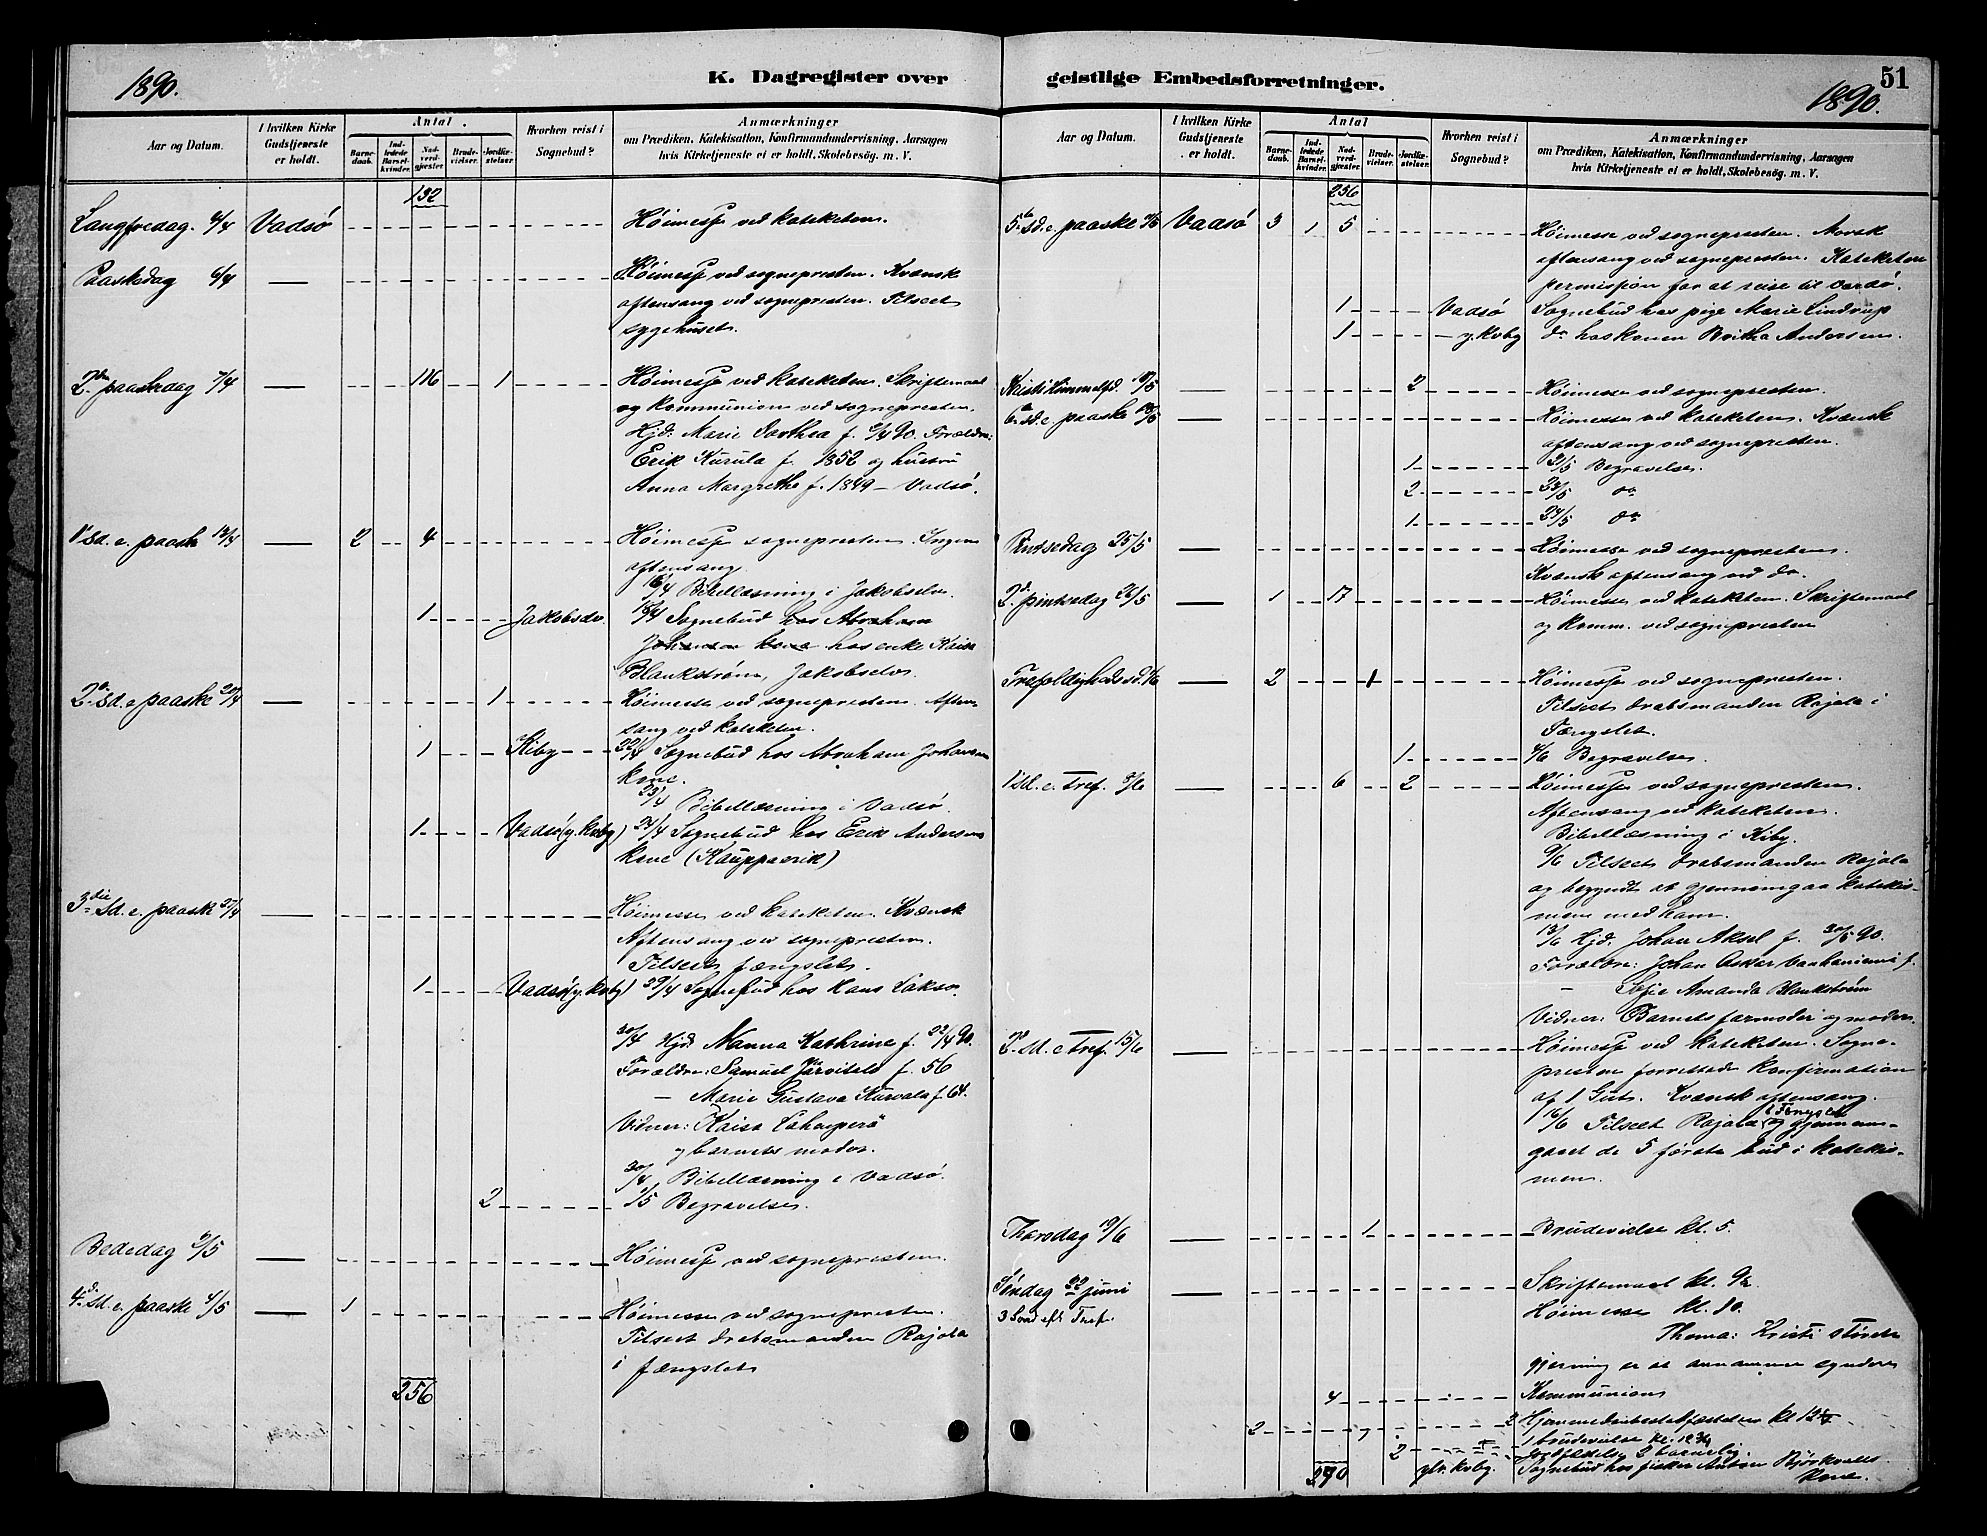 1890.
K. Dagregister over
Aar og Datum.
I hvilken Kirke Gudstjeneste er holdt.
Antal.
Barnedaab.
Indledede Barselkvinder.
Nadverdgjester.
Brudevielser.
Jordfæstelser.
Hvorhen reist i Sognebud?
Anmærkninger
om Prædiken, Katekisation, Konfirmandundervisning, Aarsagen
hvis Kirketjeneste ei er holdt, Skolebesøg. m. V.
132
Langfredag. 4/4 Vadsø Høimesse ved kateketen.
Paaskedag 6/4 — Høimesse ved sognepresten. Kvænsk
aftensang ved sognepresten. Tilseet
sygehuset.
2den paaskedag 7/4 — 116 1 Høimesse ved kateketen. Skriftemaal
og kommunion ved sognepresten.
Hjd: Marie Dorthea f. 90. Forældre:
Erik Kurula f. 1852 og hustru
Anna Margrethe f. 1849 – Vadsø.
1 sd. e. paaske 13/4 — 2 4 Høimesse sognepresten. Ingen
aftensang.
16/4 Bibellæsning i Jakobselv.
1 Jakobselv. Sognebud hos Abraham
Johansen kone hos enke Kaisa
Blankstrøm, Jakobselv.
2. sd. e paaske 20/4 — 1 Høimesse ved sognepresten. Aften-
sang ved kateketen.
1 Kiby 22/4 Sognebud hos Abraham Johansen
kone.
23/4 Bibellæsning i Vadsø.
1 Vadsø (y. kvby) 24/4 Sognebud hos Erik Andersen
kone (Kauppaerik)
3die sd. e. paaske 27/4 — Høimesse ved kateketen. Kvænsk
Aftensang ved sognepresten.
Tilseet fængslet.
1 Vadsø (y. kvby) Sognebud hos Hans Lakso.
30/4 Hjd. Nanna Kathrine f. 22/4 90.
Forældre: Samuel Järvitalo f. 56
— Marie Gustava Kurvala f. 64.
Vidner: Kaisa
og barnets moder.
30/4 Bibellæsning i Vadsø.
2 Begravelser.
Bededag 2/5 — Høimesse ved sognepresten.
4. sd. e. paaske 4/5 — 1 Høimesse ved sognepresten.
Tilseet drabsmanden Rajala
i fængslet
256
geistlige Embedsforretninger.
51
1890.
Aar og Datum.
I hvilken Kirke Gudstjeneste er holdt.
Antal
Barnedaab.
Indledede Barselkvinder.
Nadverdgjester.
Brudevielser.
Jordfæstelser.
Hvorhen reist i Sognebud?
Anmærkninger
om Prædiken, Katekisation, Konfirmandundervisning, Aarsagen
hvis Kirketjeneste ei er holdt, Skolebesøg. m. V.
256
5te sd. e. paaske Vadsø 3 1 5 Høimesse ved sognepresten. Norsk
aftensang ved sognepresten. Kateketen
permisjon for at reise til Vardø.
1 Vadsø Sognebud hos pige Marie Lindrup
1 — y. kvby do hos konen Britha Andersen.
Kristi Himmelfd. 15/5 — 2 Høimesse ved sognepresten.
6te sd. e. paaske 18/5 — Høimesse ved kateketen. Kvænsk
aftensang ved sognepresten.
1 21/5 Begravelse.
2 23/5 do
1 24/5 do
Pintsedag 25/5 — Høimesse ved sognepresten.
Kvænsk aftensang ved do.
2d. pintsedag 26/5 — 1 17 Høimesse ved kateketen. Skriftemaal
og komm. ved sognepresten
Trefoldigheds sd. 1/6 — 2 1 Høimesse ved sognepresten.
Tilseet drabsmanden Rajala i
Fængslet.
1 4/6 Begravelse.
1 sd. e. Tref. 8/6 — 6 2 Høimesse ved sognepresten.
Aftensang ved kateketen.
Bibellæsning i Kiby.
9/6 Tilseet drabsmanden Rajala
og begyndt at gjennemgaa katekis-
men med ham.
13/6 Hjd. Johan Aksel f. 30/5 90.
Forældre: Johan Oskar Vanhaniemi f.
— Sofie Amanda Blankstrøm
Vidner: Barnets farmoder og moder.
2. sd. e Tref. 15/6 — Høimesse ved kateketen. Sogne-
presten forrettede Konfirmation
af 1 Gut. Kvænsk aftensang.
16/6 Tilseet Rajala i Fengslet og gjennem-
gaaet de 5 første bud i katekis-
men.
Thorsdag 19/6 — 1 Brudevielse kl. 5.
Søndag 22 juni
3 Sønd eft Tref.
Skriftemaal kl. 9½
Høimesse kl. 10.
Thema: Kristi største
gjerning er at annamme syndere
4 Kommunion
2 2 Hjemmedøbte kl 12
1 1 brudevielse kl.
2 Jordfæstelse 2 barnelig.
ytr. kvby. Sognebud hos fisker Anton Björkvalls
Kone.
270